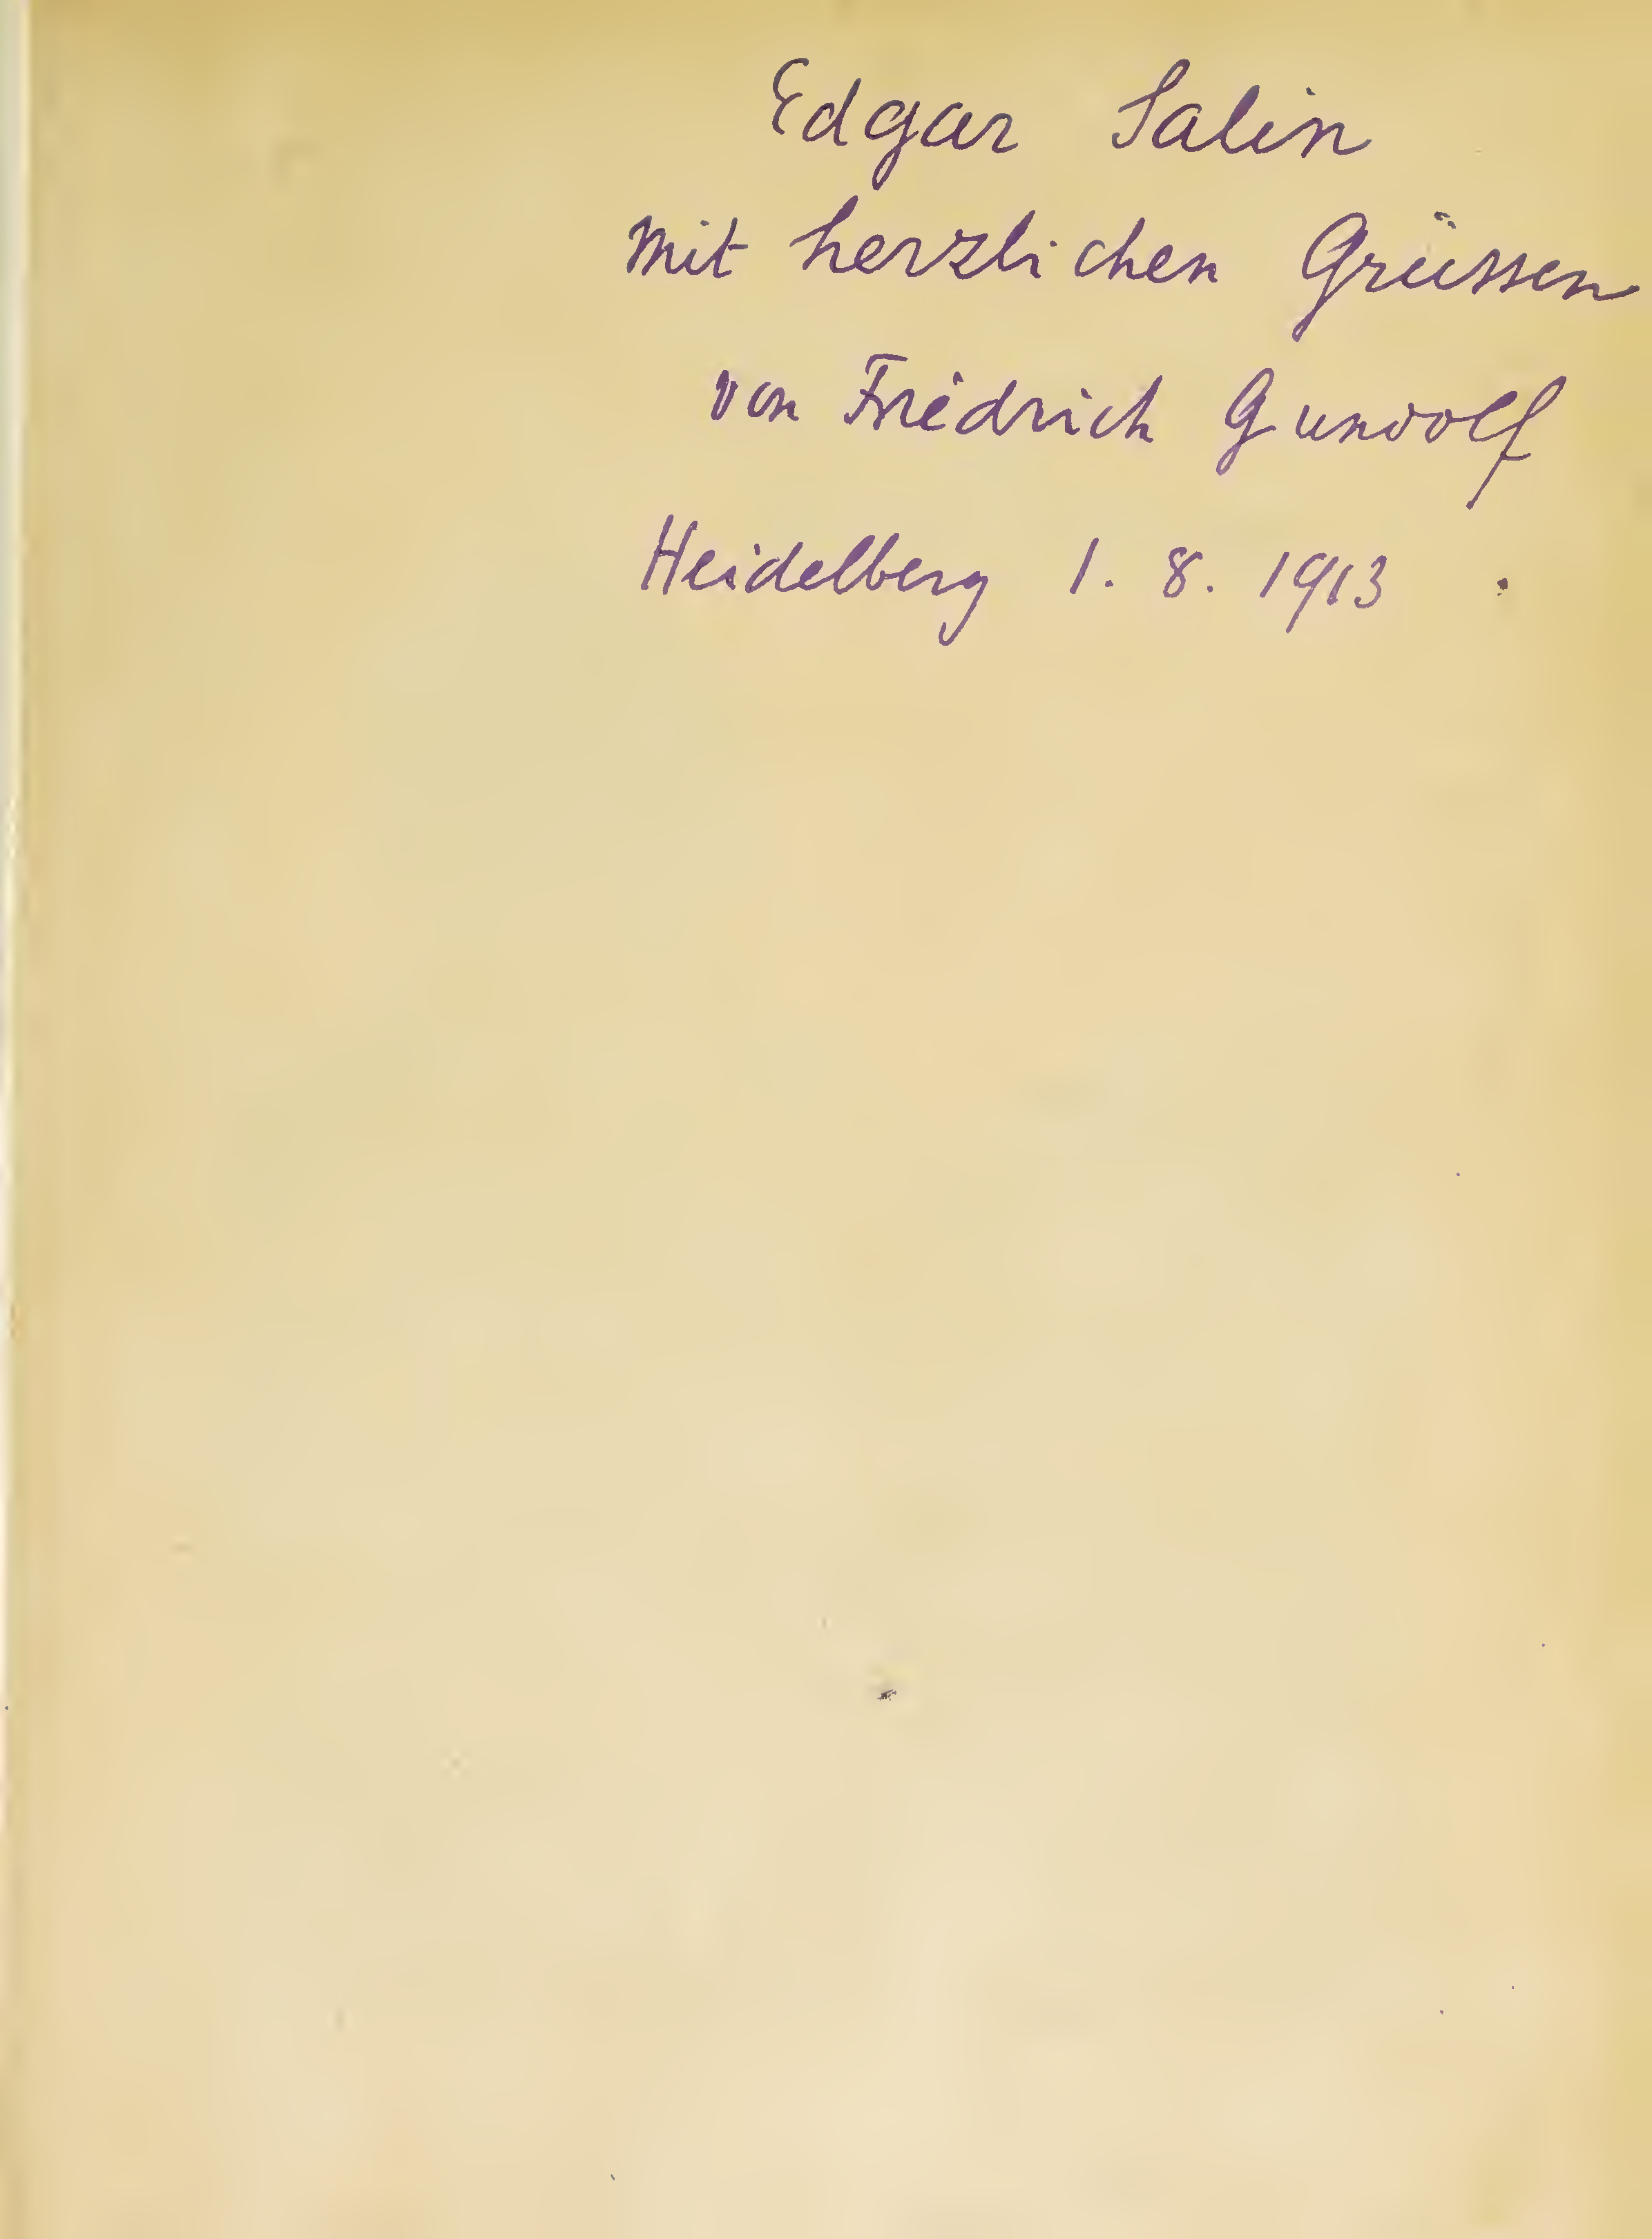 Edgar Salin
mit herzlichen Grüssen
von Friedrich Gundolf
Heidelberg 1. 8. 1913